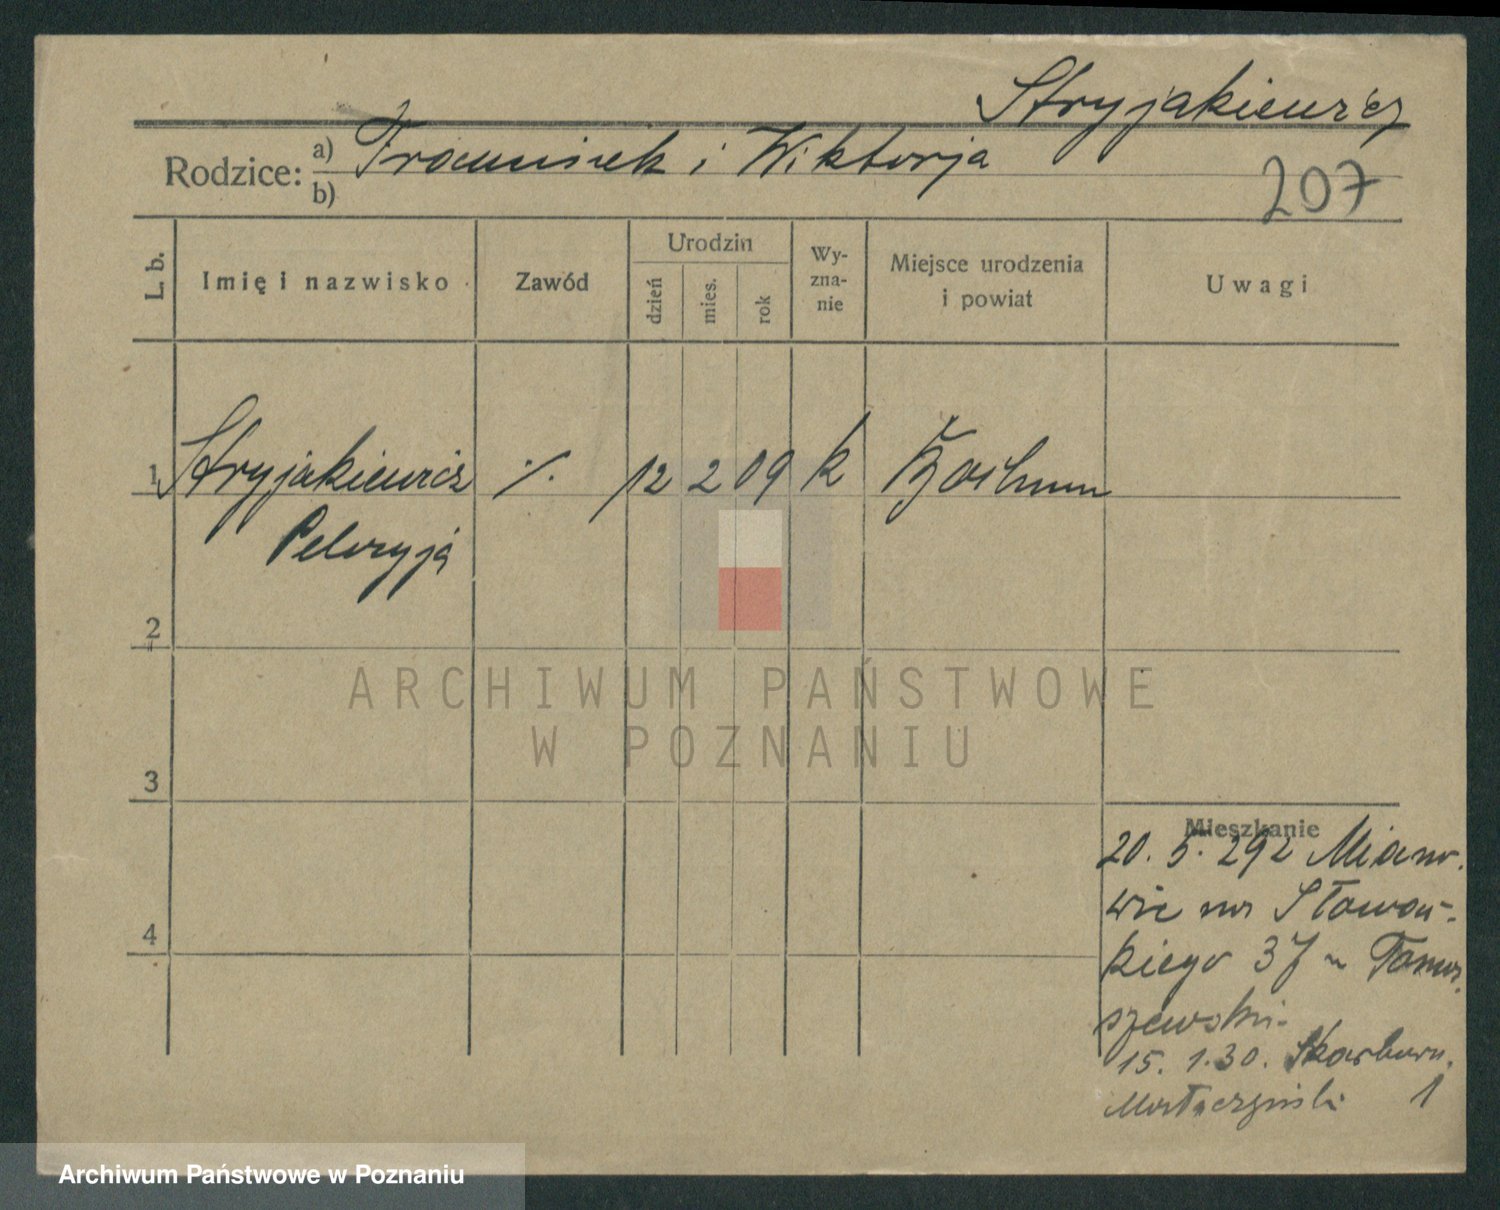 Stryjakiewicz
Rodzice: a) Franciszek i Wiktorja
b)
207
L. b.
Imię i nazwisko
Zawód
Urodzin
dzień
mies.
rok
Wy-
zna-
nie
Miejsce urodzenia
i powiat
Uwagi
1 Stryjakiewicz ·/. 12 2 09 k Bochum
Pelagja
2
3
4
ARCHIWUM PAŃSTWOWE
W POZNANIU
Mieszkanie
20. 5. 29 z
kiego 37
szewski
15. 1. 30. Skarbowa
1
Archiwum Państwowe w Poznaniu